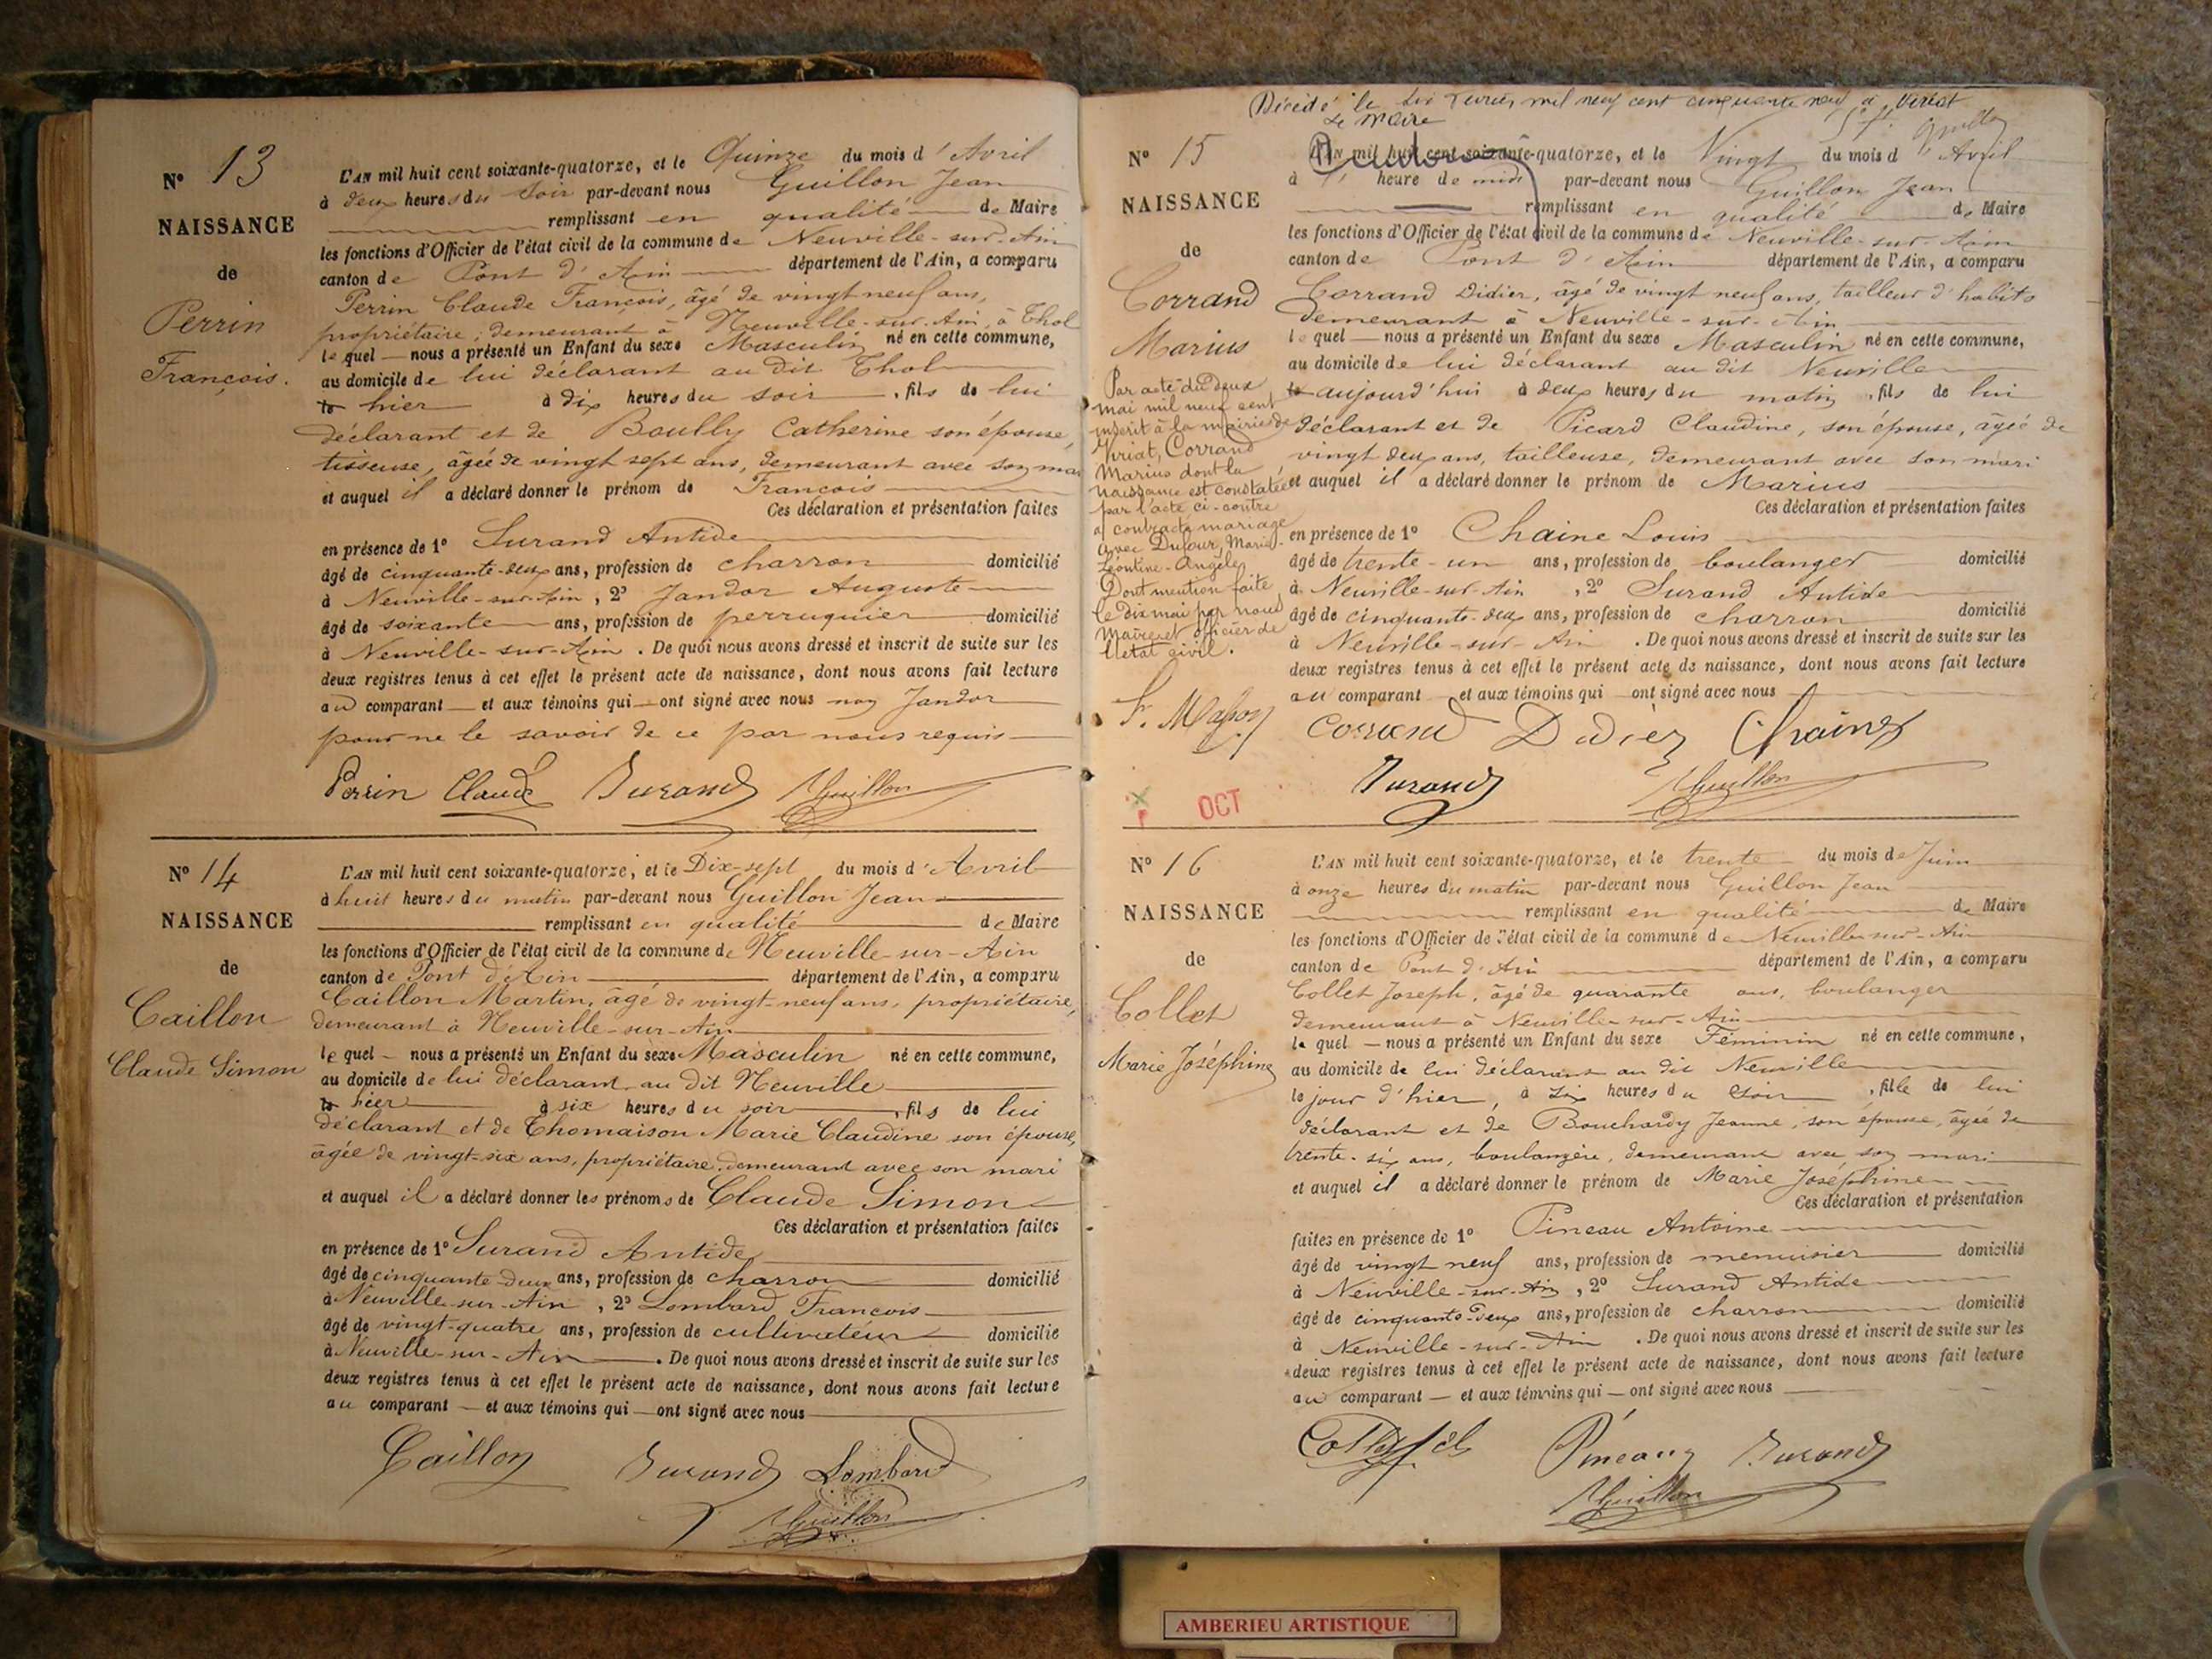 N° 13
NAISSANCE
de
Perrin
François.
L'AN mil huit cent soixante-quatorze, et le Quinze du mois d'Avril
à deux heures du soir par-devant nous Guillon Jean
remplissant en qualité de Maire
les fonctions d'Officier de l'état civil de la commune de Neuville-sur-Ain
canton de Pont d'Ain département de l'Ain, a comparu
Perrin Claude François, âgé de vingt neuf ans,
propriétaire, demeurant à Neuville-sur-Ain, à Thol
lequel nous a présenté un Enfant du sexe Masculin né en cette commune,
au domicile de lui déclarant au dit Thol
hier à dix heures du soir, fils de lui
déclarant et de Boully Catherine son épouse,
tisseuse, âgée de vingt sept ans, demeurant avec son mari
et auquel il a déclaré donner le prénom de François
Ces déclaration et présentation faites
en présence de 1° Surand Antide
âgé de cinquante-deux ans, profession de charron domicilié
à Neuville-sur-Ain, 2° Jandor Auguste
âgé de soixante ans, profession de perruquier domicilié
à Neuville-sur-Ain. De quoi nous avons dressé et inscrit de suite sur les
deux registres tenus à cet effet le présent acte de naissance, dont nous avons fait lecture
au comparant et aux témoins qui ont signé avec nous non Jandor
pour ne le savoir de ce par nous requis
Perrin Claude Surand Guillon
N° 14
NAISSANCE
de
Caillon
Claude Simon
L'AN mil huit cent soixante-quatorze, et le Dix-sept du mois d'Avril
à huit heures du matin par-devant nous Guillon Jean
remplissant en qualité de Maire
les fonctions d'Officier de l'état civil de la commune de Neuville-sur-Ain
canton de Pont d'Ain département de l'Ain, a comparu
Caillon Martin, âgé de vingt-neuf ans, propriétaire,
demeurant à Neuville-sur-Ain
lequel nous a présenté un Enfant du sexe Masculin né en cette commune,
au domicile de lui déclarant au dit Neuville
hier à six heures du soir, fils de lui
déclarant et de Thomaison Marie Claudine son épouse,
âgée de vingt-six ans, propriétaire, demeurant avec son mari
et auquel il a déclaré donner les prénoms de Claude Simon
Ces déclaration et présentation faites
en présence de 1° Surand Antide
âgé de cinquante-deux ans, profession de charron domicilié
à Neuville-sur-Ain, 2° Lombard François
âgé de vingt-quatre ans, profession de cultivateur domicilié
à Neuville-sur-Ain. De quoi nous avons dressé et inscrit de suite sur les
deux registres tenus à cet effet le présent acte de naissance, dont nous avons fait lecture
au comparant et aux témoins qui ont signé avec nous
Caillon Surand Lombard
Guillon
Décédé le dix mil neuf cent cinquante neuf à Viriat
Le Maire
N° 15
NAISSANCE
de
Corrand
Marius
Par acte du deux
mai mil neuf cent
inscrit à la mairie de
Viriat, Corrand
Marius dont la
naissance est constatée
par l'acte ci-contre
a contracté mariage
avec Dufour, Marie-
Léontine-Angèle
Dont mention faite
le dix mai par nous
maire et officier de
l'état civil.
L'AN mil huit cent soixante-quatorze, et le Vingt du mois d'Avril
à heure de midi par-devant nous Guillon Jean
remplissant en qualité de Maire
les fonctions d'Officier de l'état civil de la commune de Neuville-sur-Ain
canton de Pont d'Ain département de l'Ain, a comparu
Corrand Didier, âgé de vingt neuf ans, tailleur d'habits
demeurant à Neuville-sur-Ain
lequel nous a présenté un Enfant du sexe Masculin né en cette commune,
au domicile de lui déclarant au dit Neuville
aujourd'hui à deux heures du matin, fils de lui
déclarant et de Picard Claudine, son épouse, âgée de
vingt deux ans, tailleuse, demeurant avec son mari
et auquel il a déclaré donner le prénom de Marius
Ces déclaration et présentation faites
en présence de 1° Chaine Louis
âgé de trente-un ans, profession de boulanger domicilié
à Neuville-sur-Ain, 2° Surand Antide
âgé de cinquante-deux ans, profession de charron domicilié
à Neuville-sur-Ain. De quoi nous avons dressé et inscrit de suite sur les
deux registres tenus à cet effet le présent acte de naissance, dont nous avons fait lecture
au comparant et aux témoins qui ont signé avec nous
Corrand Didier Chaine
Surand Guillon
OCT
N° 16
NAISSANCE
de
Collet
Marie Joséphine
L'AN mil huit cent soixante-quatorze, et le trente du mois de Juin
à onze heures du matin par-devant nous Guillon Jean
remplissant en qualité de Maire
les fonctions d'Officier de l'état civil de la commune de Neuville-sur-Ain
canton de Pont d'Ain département de l'Ain, a comparu
Collet Joseph, âgé de quarante ans, boulanger
demeurant à Neuville-sur-Ain
lequel nous a présenté un Enfant du sexe Féminin né en cette commune,
au domicile de lui déclarant au dit Neuville
le jour d'hier, à six heures du soir, fille de lui
déclarant et de Bouchardy Jeanne, son épouse, âgée de
trente-six ans, boulangère, demeurant avec son mari
et auquel il a déclaré donner le prénom de Marie Joséphine
Ces déclaration et présentation
faites en présence de 1° Pineau Antoine
âgé de vingt neuf ans, profession de menuisier domicilié
à Neuville-sur-Ain, 2° Surand Antide
âgé de cinquante-deux ans, profession de charron domicilié
à Neuville-sur-Ain. De quoi nous avons dressé et inscrit de suite sur les
deux registres tenus à cet effet le présent acte de naissance, dont nous avons fait lecture
au comparant et aux témoins qui ont signé avec nous
Collet Pineau Surand
Guillon
AMBERIEU ARTISTIQUE